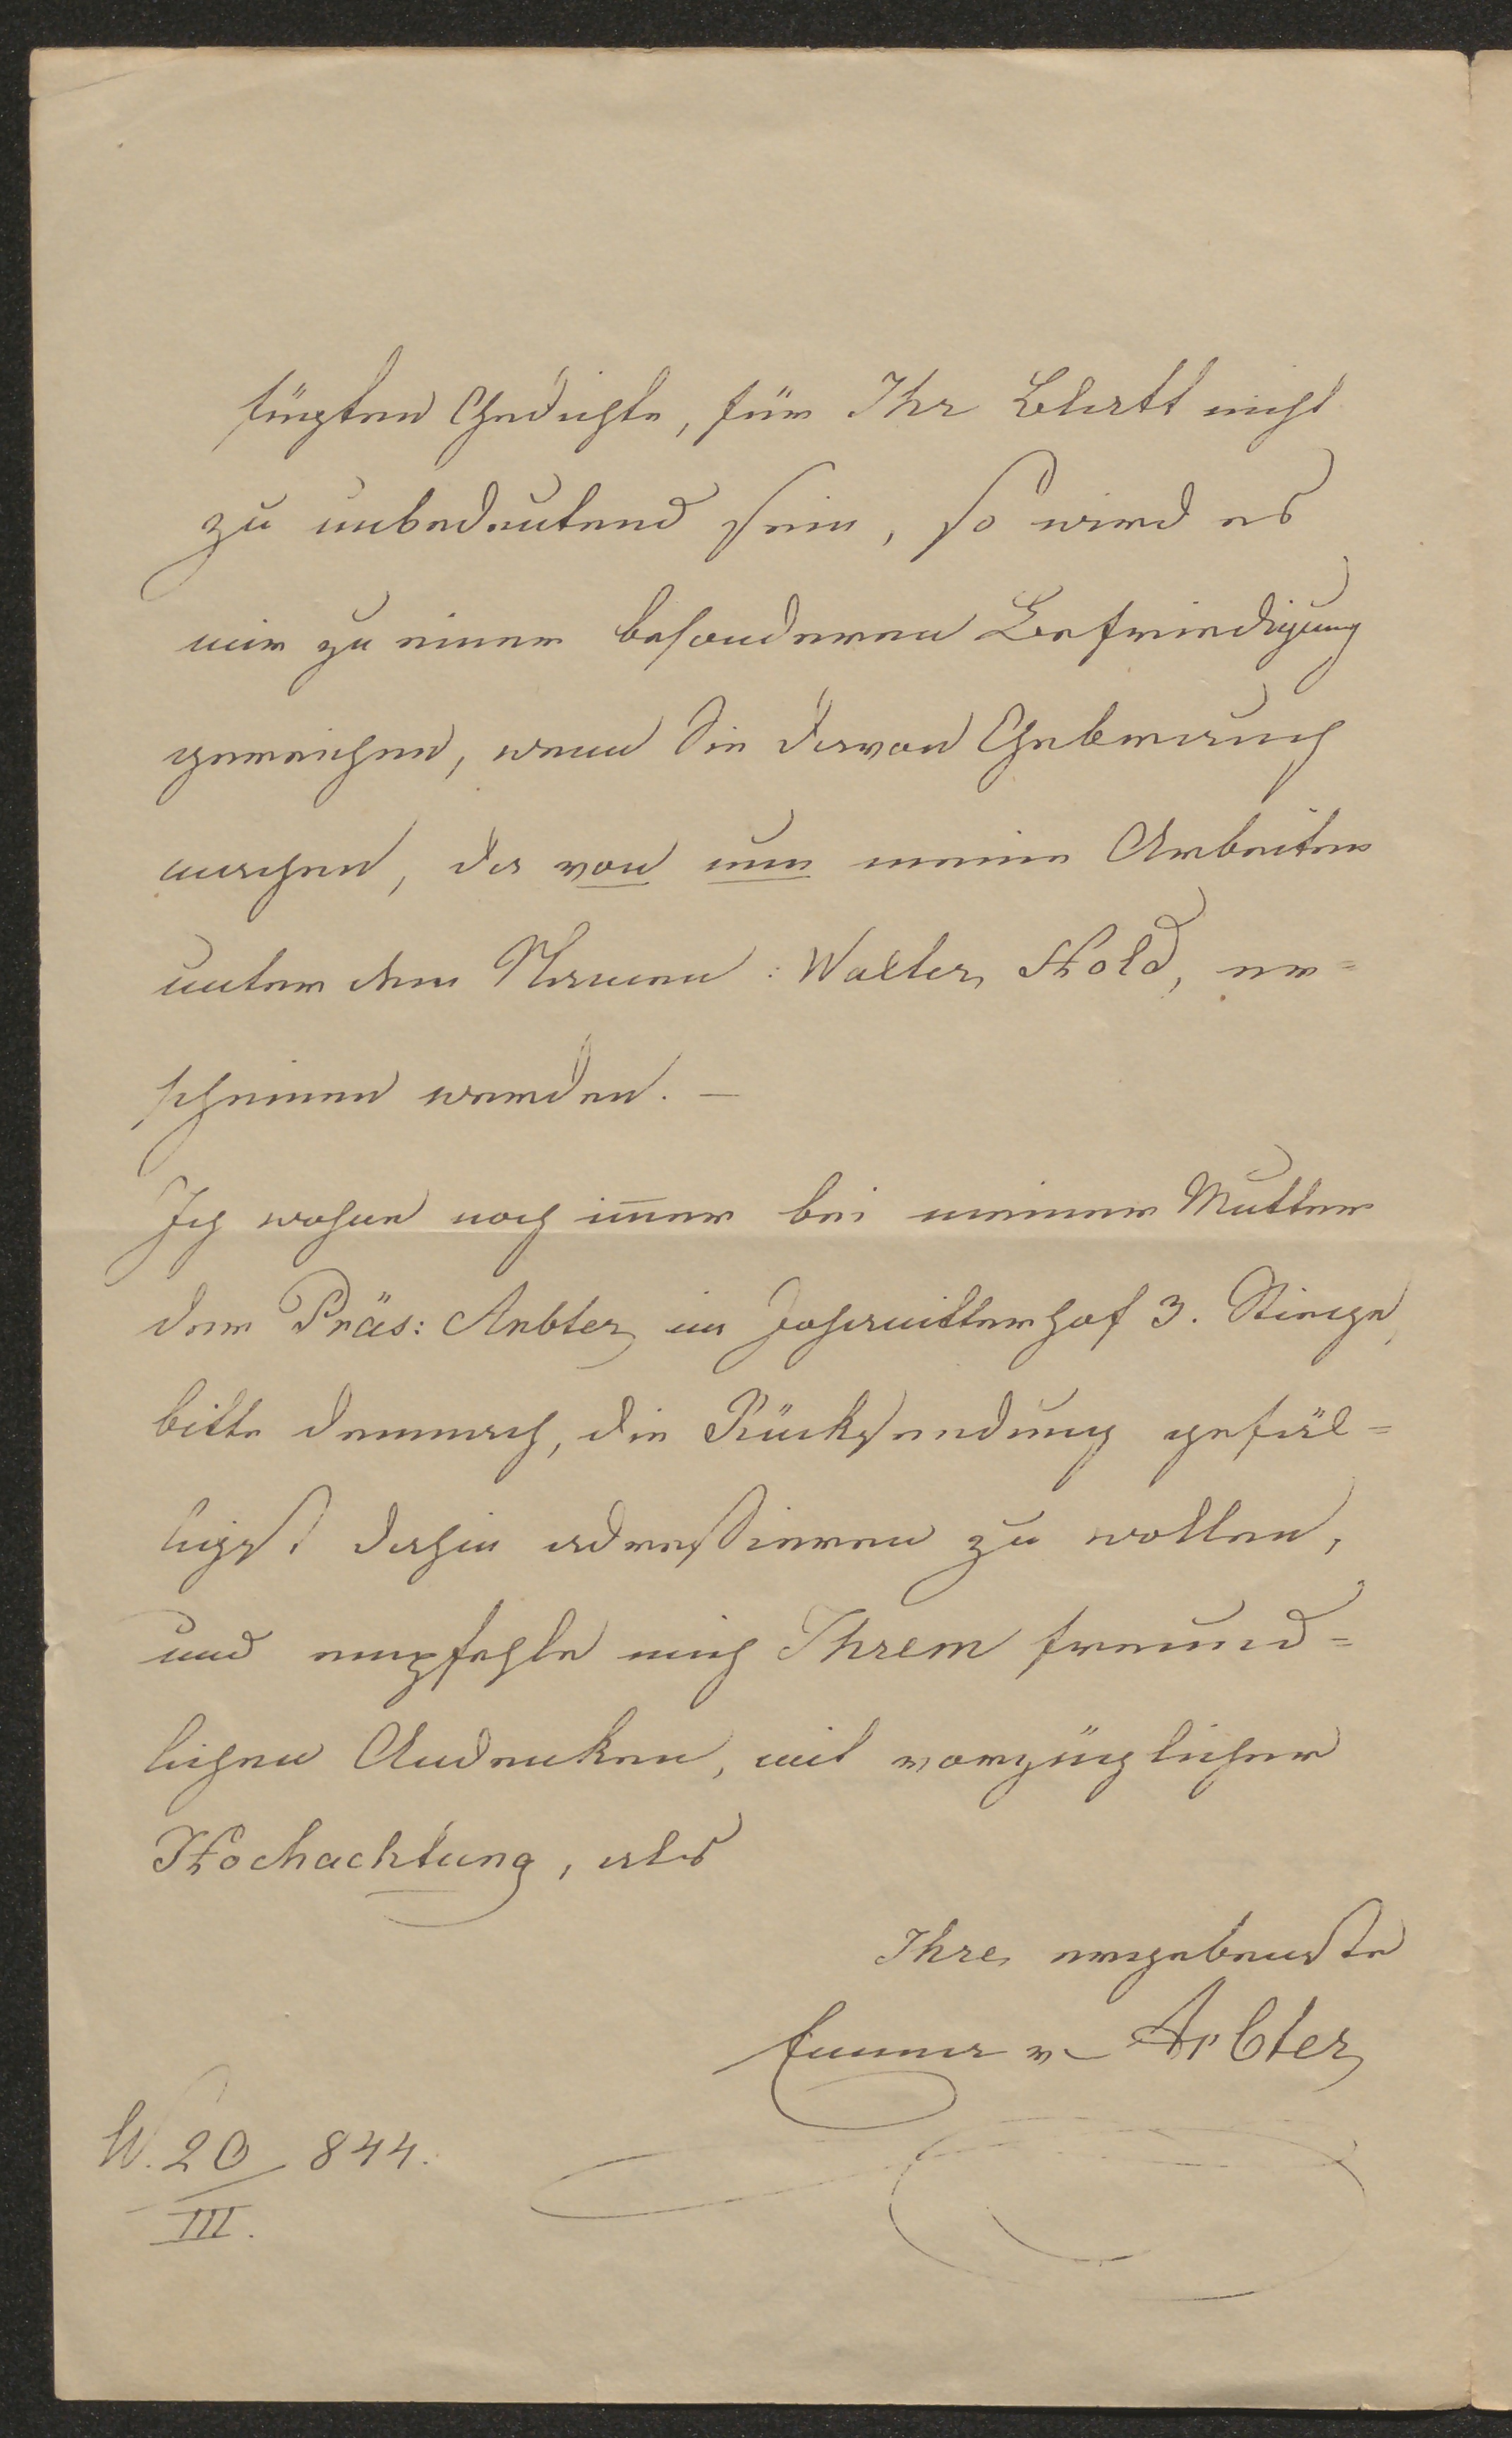 fügten Gedichte, für Ihr Blatt nicht
zu unbedeutend sein, so wird es
mir zu einer besonderen Befriedigung
gereichen, wenn Sie davon Gebrauch
machen, da von nun meine Arbeiten
unter dem Namen: Walter Hold, er=
scheinen werden. —
Ich wohne noch im̅er bei meiner Mutter
der Präs: Arbter im Jakominierhof 3. Stiege,
bitte demnach, die Rücksendung gefäl=
ligst dahin adreßieren zu wollen,
und empfehle mich Ihrem freund=
lichen Andenken, mit vorzüglicher
Hochachtung, als
Ihre ergebenste
Emma v Arbter
W. 20 844.
III.